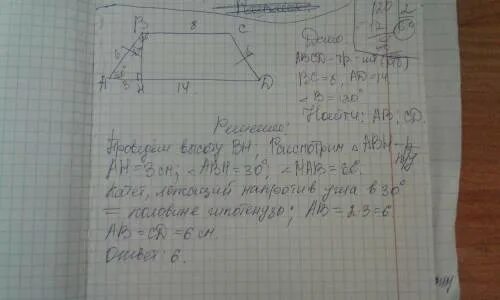 B 8 C
6
6
A 3 H 14 D
120 2
60
Дано:
ABCD - тр-ция (р/б)
BC=8, AD=14
∠B=120°
Найти: AB, CD.
Решение:
Проведём высоту BH. Рассмотрим △ABH - п/у
AH=3см; ∠ABH=30°, ∠HAB=60.
Катет, лежащий напротив угла в 30°
= половине гипотенузы; AB=2·3=6
AB=CD=6 см.
Ответ: 6.